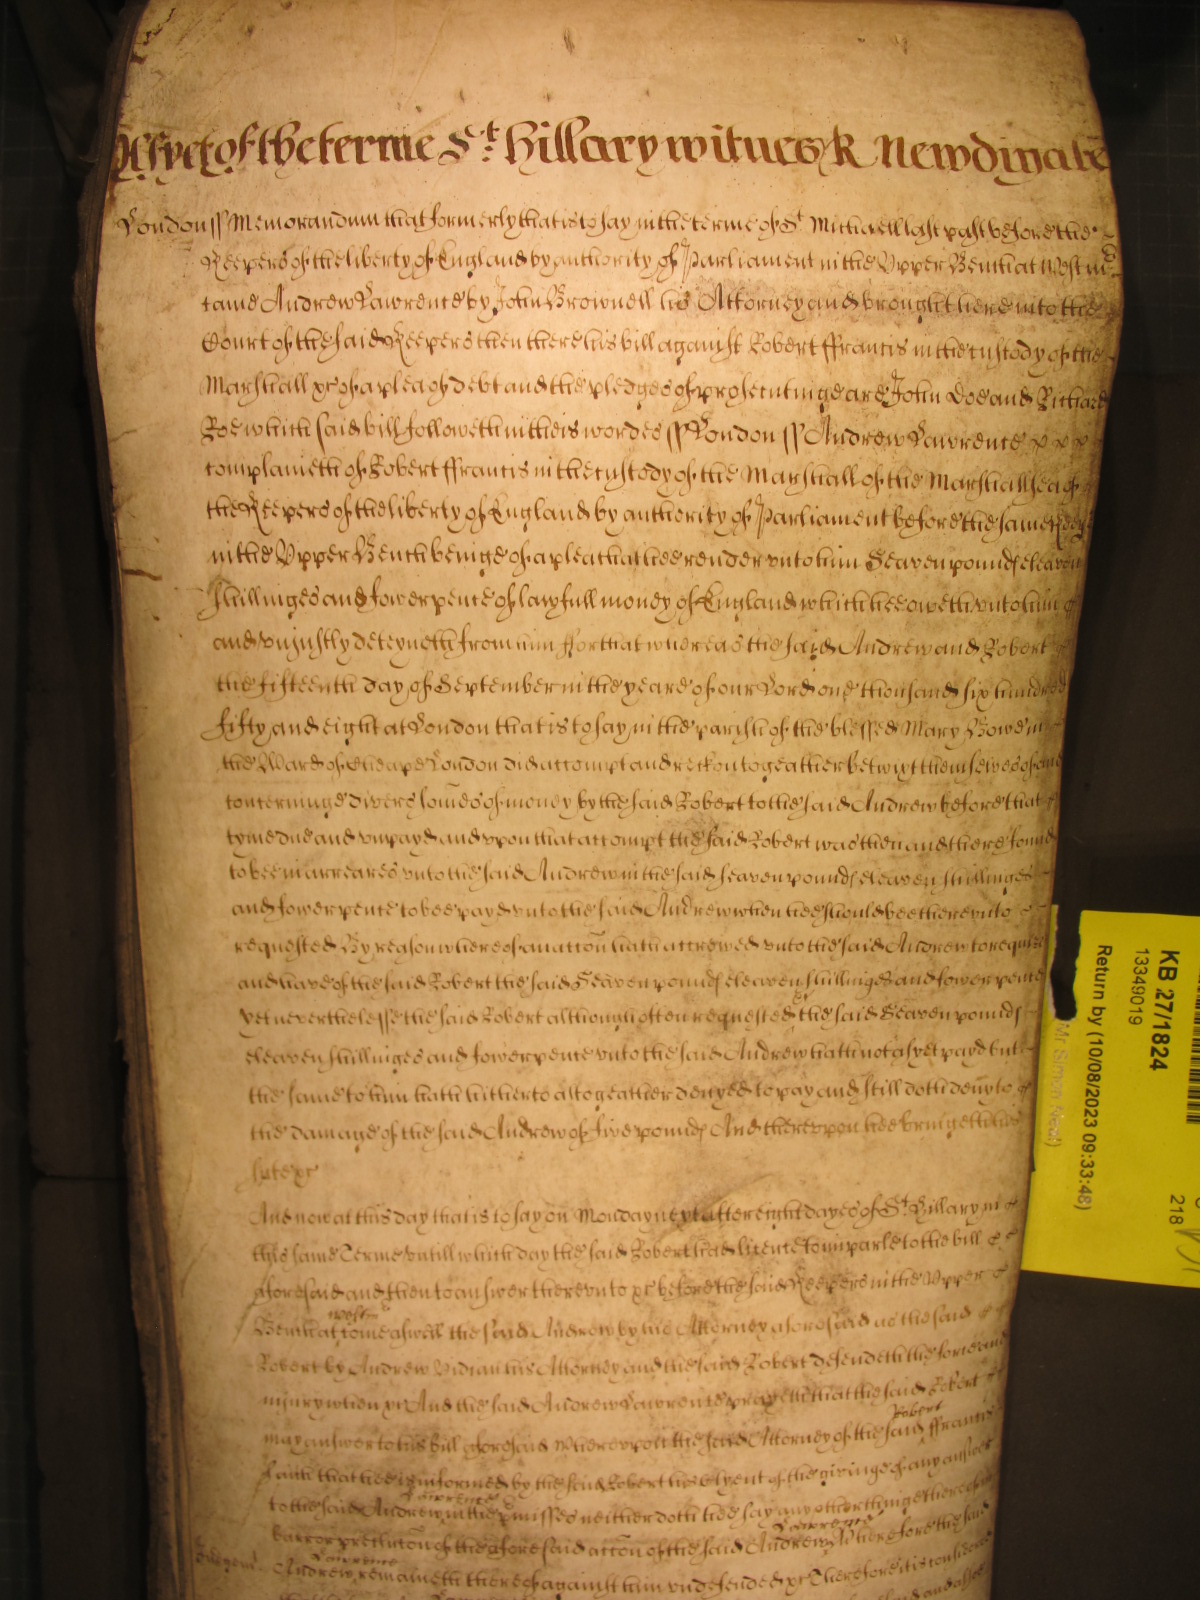 As yet of the terme St. Hillary witnes R Newdigate
London ss Memorandum that formerly that is to say in the terme of St Michaell last past before the
Keepers of the liberty of England by authority of Parliament in the Upper Bench at Westm
came Andrew Lawrence by John Brownell his Attorney and brought here into the
Court of the said Keepers then there his bill against Robert ffrancis in the custody of the
Marshall &c of a plea of debt and the pledges of prosecutinge are John Doe and Richard
Roe which said bill followeth in theis wordes ss London ss Andrew Lawrence
complaineth of Robert ffrancis in the custody of the Marshall of the Marshallsea of
the Keepers of the liberty of England by authority of Parliament before the same Keep
in the Upper Bench beinge of a plea that hee render unto him Seaven pounds eleaven
shillinges and fower pence of lawfull money of England which hee oweth unto him
and uniustly deteyneth from him ffor that whereas the said Andrew and Robert
the fifteenth day of September in the yeare of our Lord one thousand six hundred
fifty and eight at London that is to say in the parish of the blessed Mary Bowe in
the Ward of Cheape London did accompt and reckon togeather betwixt themselves of and
concerninge divers somes of money by the said Robert to the said Andrew before that
tyme due and unpayd and upon that accompt the said Robert was then and there found
to bee in arreares unto the said Andrew in the said seaven pounds eleaven shillinges
and fower pence to bee payd unto the said Andrew when hee should bee thereunto
requested By reason whereof an accon hath accrewed unto the said Andrew to require
and have of the said Robert the said Seaven pounds eleaven shillinges and fower pence
yet neverthelesse the said Robert although often requested the said Seaven pounds
eleaven shillinges and fower pence unto the said Andrew hath not as yet payd but
the same to him hath hitherto altogeather denyed to pay and still doth deny to
the damage of the said Andrew of five pounds And thereupon hee bringeth his
sute &c
And now at this day that is to say on Monday next after eight dayes of St Hillary in
this same Terme untill which day the said Robert had licence to imparle to the bill
aforesaid and then to answer thereunto &c before the said Keepers in the Upper
Bench at Westm come aswell the said Andrew by his Attorney aforesaid as the said
Robert by Andrew Vidian his Attorney and the said Robert defendeth the force and
iniury when &c And the said Andrew Lawrence prayeth that the said Robert
may answer to his bill aforesaid Whereupon the said Attorney of the said Robert ffrancis
saith that hee is informed by the said Robert his clyent of the givinge of any answer
to the said Andrew Lawrence in the pmisses neither doth hee say any other thinge there
barr or preclucon of the aforesaid accon of the said Andrew Lawrence Wherefore the said
Andrew Lawrence remaineth thereof against him undefended &c Therefore it is considered
KB 27/1824
13349019
Return by (10/08/2023 09:33:48)
218